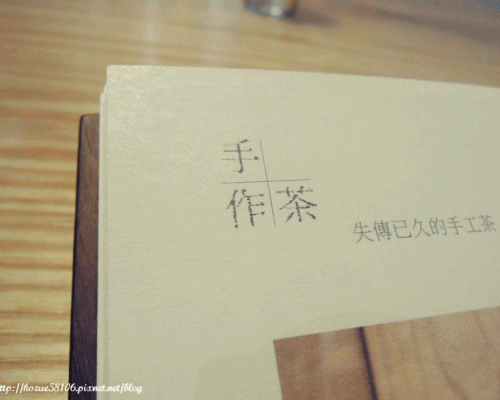 手
作茶
失傳已久的手工茶
http://hozue58106.pixnet.net/blog